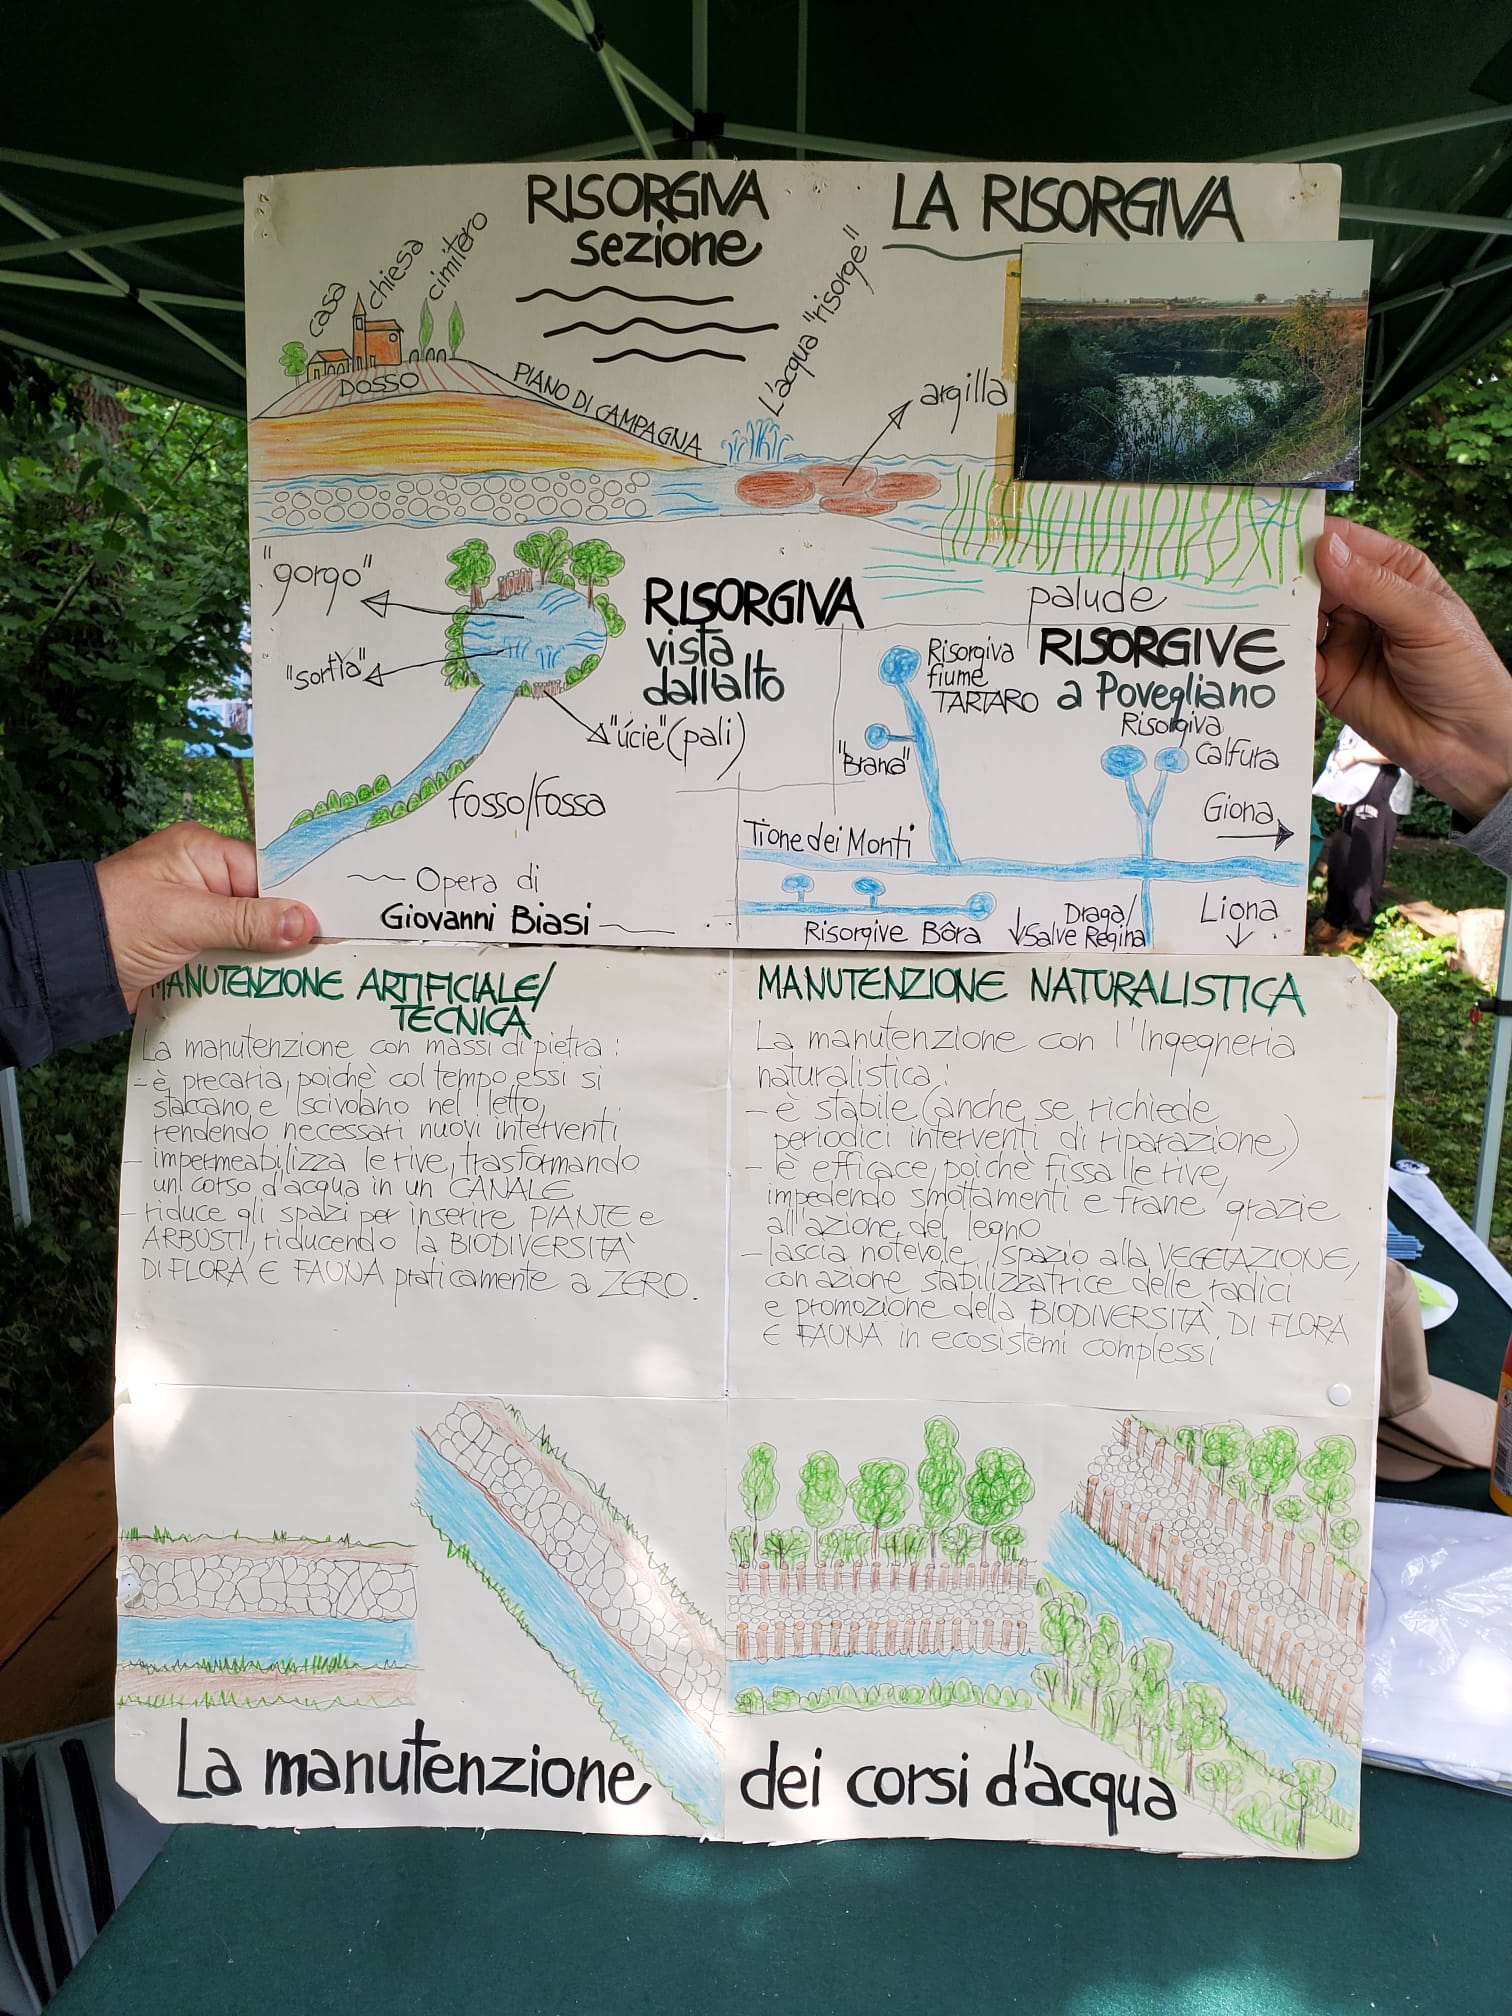 RISORGIVA
sezione
casa
chiesa
cimitero
DOSSO
PIANO DI CAMPAGNA
L'acqua "risorge"
LA RISORGIVA
argilla
palude
"gorgo"
"sortìa"
"úcie" (pali)
fosso/fossa
RISORGIVA
vista
dall'alto
Opera di
Giovanni Biasi
RISORGIVE
a Povegliano
Risorgiva
fiume
TARTARO
"Brana"
Risorgiva
Calfura
Giona
Tione dei Monti
Risorgive Bôra
Draga/
Salve Regina
Liona
MANUTENZIONE ARTIFICIALE/
TECNICA
La manutenzione con massi di pietra:
- è precaria, poichè col tempo essi si
staccano e scivolano nel letto,
rendendo necessari nuovi interventi
- impermeabilizza le rive, trasformando
un corso d'acqua in un CANALE
- riduce gli spazi per inserire PIANTE e
ARBUSTI, riducendo la BIODIVERSITÀ
DI FLORA E FAUNA praticamente a ZERO.
MANUTENZIONE NATURALISTICA
La manutenzione con l'Ingegneria
naturalistica:
- è stabile (anche se richiede
periodici interventi di riparazione)
- è efficace, poichè fissa le rive,
impedendo smottamenti e frane grazie
all'azione del legno
- lascia notevole spazio alla VEGETAZIONE,
con azione stabilizzatrice delle radici
e promozione della BIODIVERSITÀ DI FLORA
E FAUNA in ecosistemi complessi
La manutenzione dei corsi d'acqua